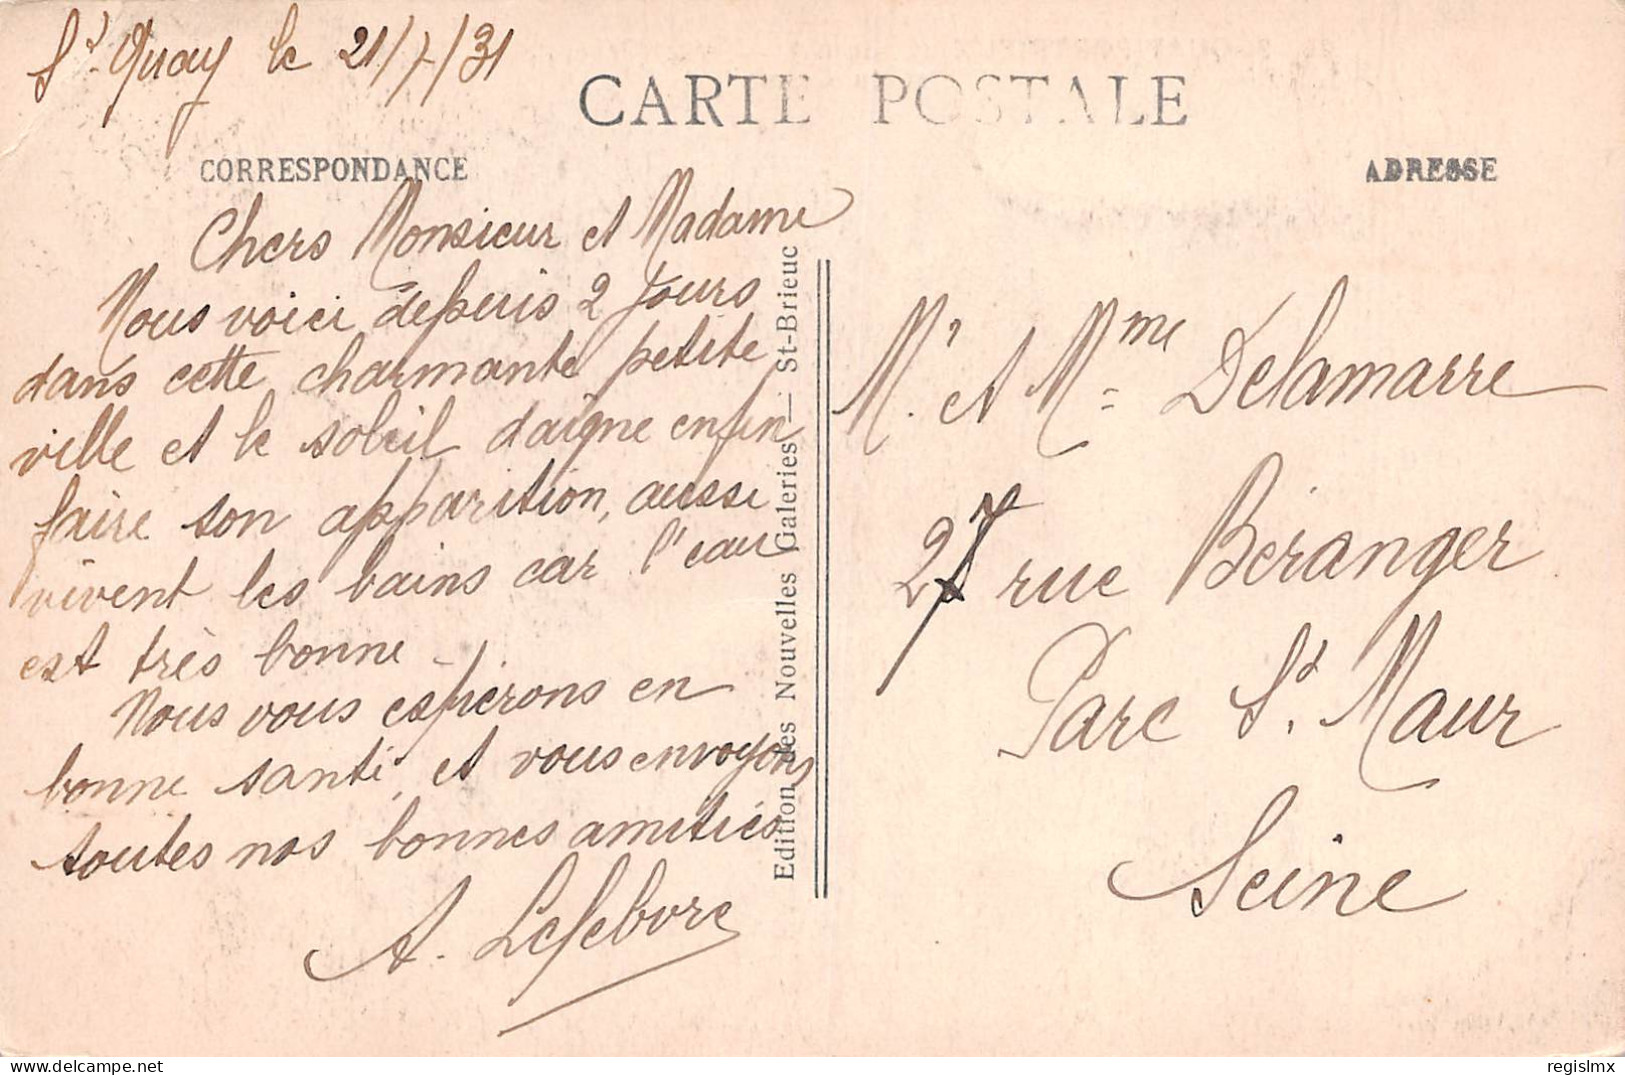 St Quay le 21/7/31
CARTE POSTALE
CORRESPONDANCE
ADRESSE
Chers Monsieur et Madame
Nous voici depuis 2 jours
dans cette charmante petite
ville et le soleil daigne enfin
faire son apparition, aussi
vivent les bains car l'eau
est très bonne -
Nous vous espérons en
bonne santé, et vous envoyons
toutes nos bonnes amitiés
A. Lefebvre
Edition des Nouvelles Galeries - St-Brieuc
Mr et Mme Delamarre
27 rue Béranger
Parc St. Maur
Seine
regislmx